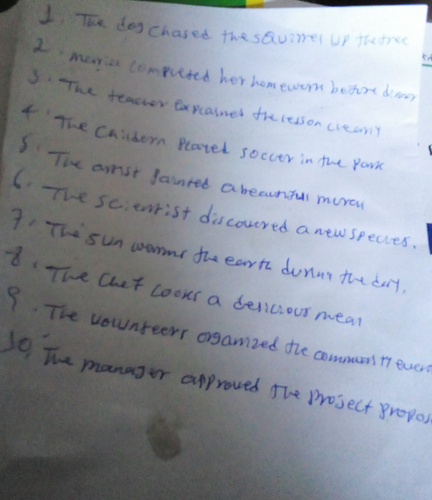 1. The dog chased the squirrel up the tree
2. completed her homework before dinner
3. The teacher explained the lesson clearly
4. The Childern played soccer in the park
5. The artist painted a beautiful
6. The scientist discovered a new species.
7. The sun warms the earth during the day.
8. The chef cooks a delicious meal
9. The volunteers organized the community
10. The manager approved the project